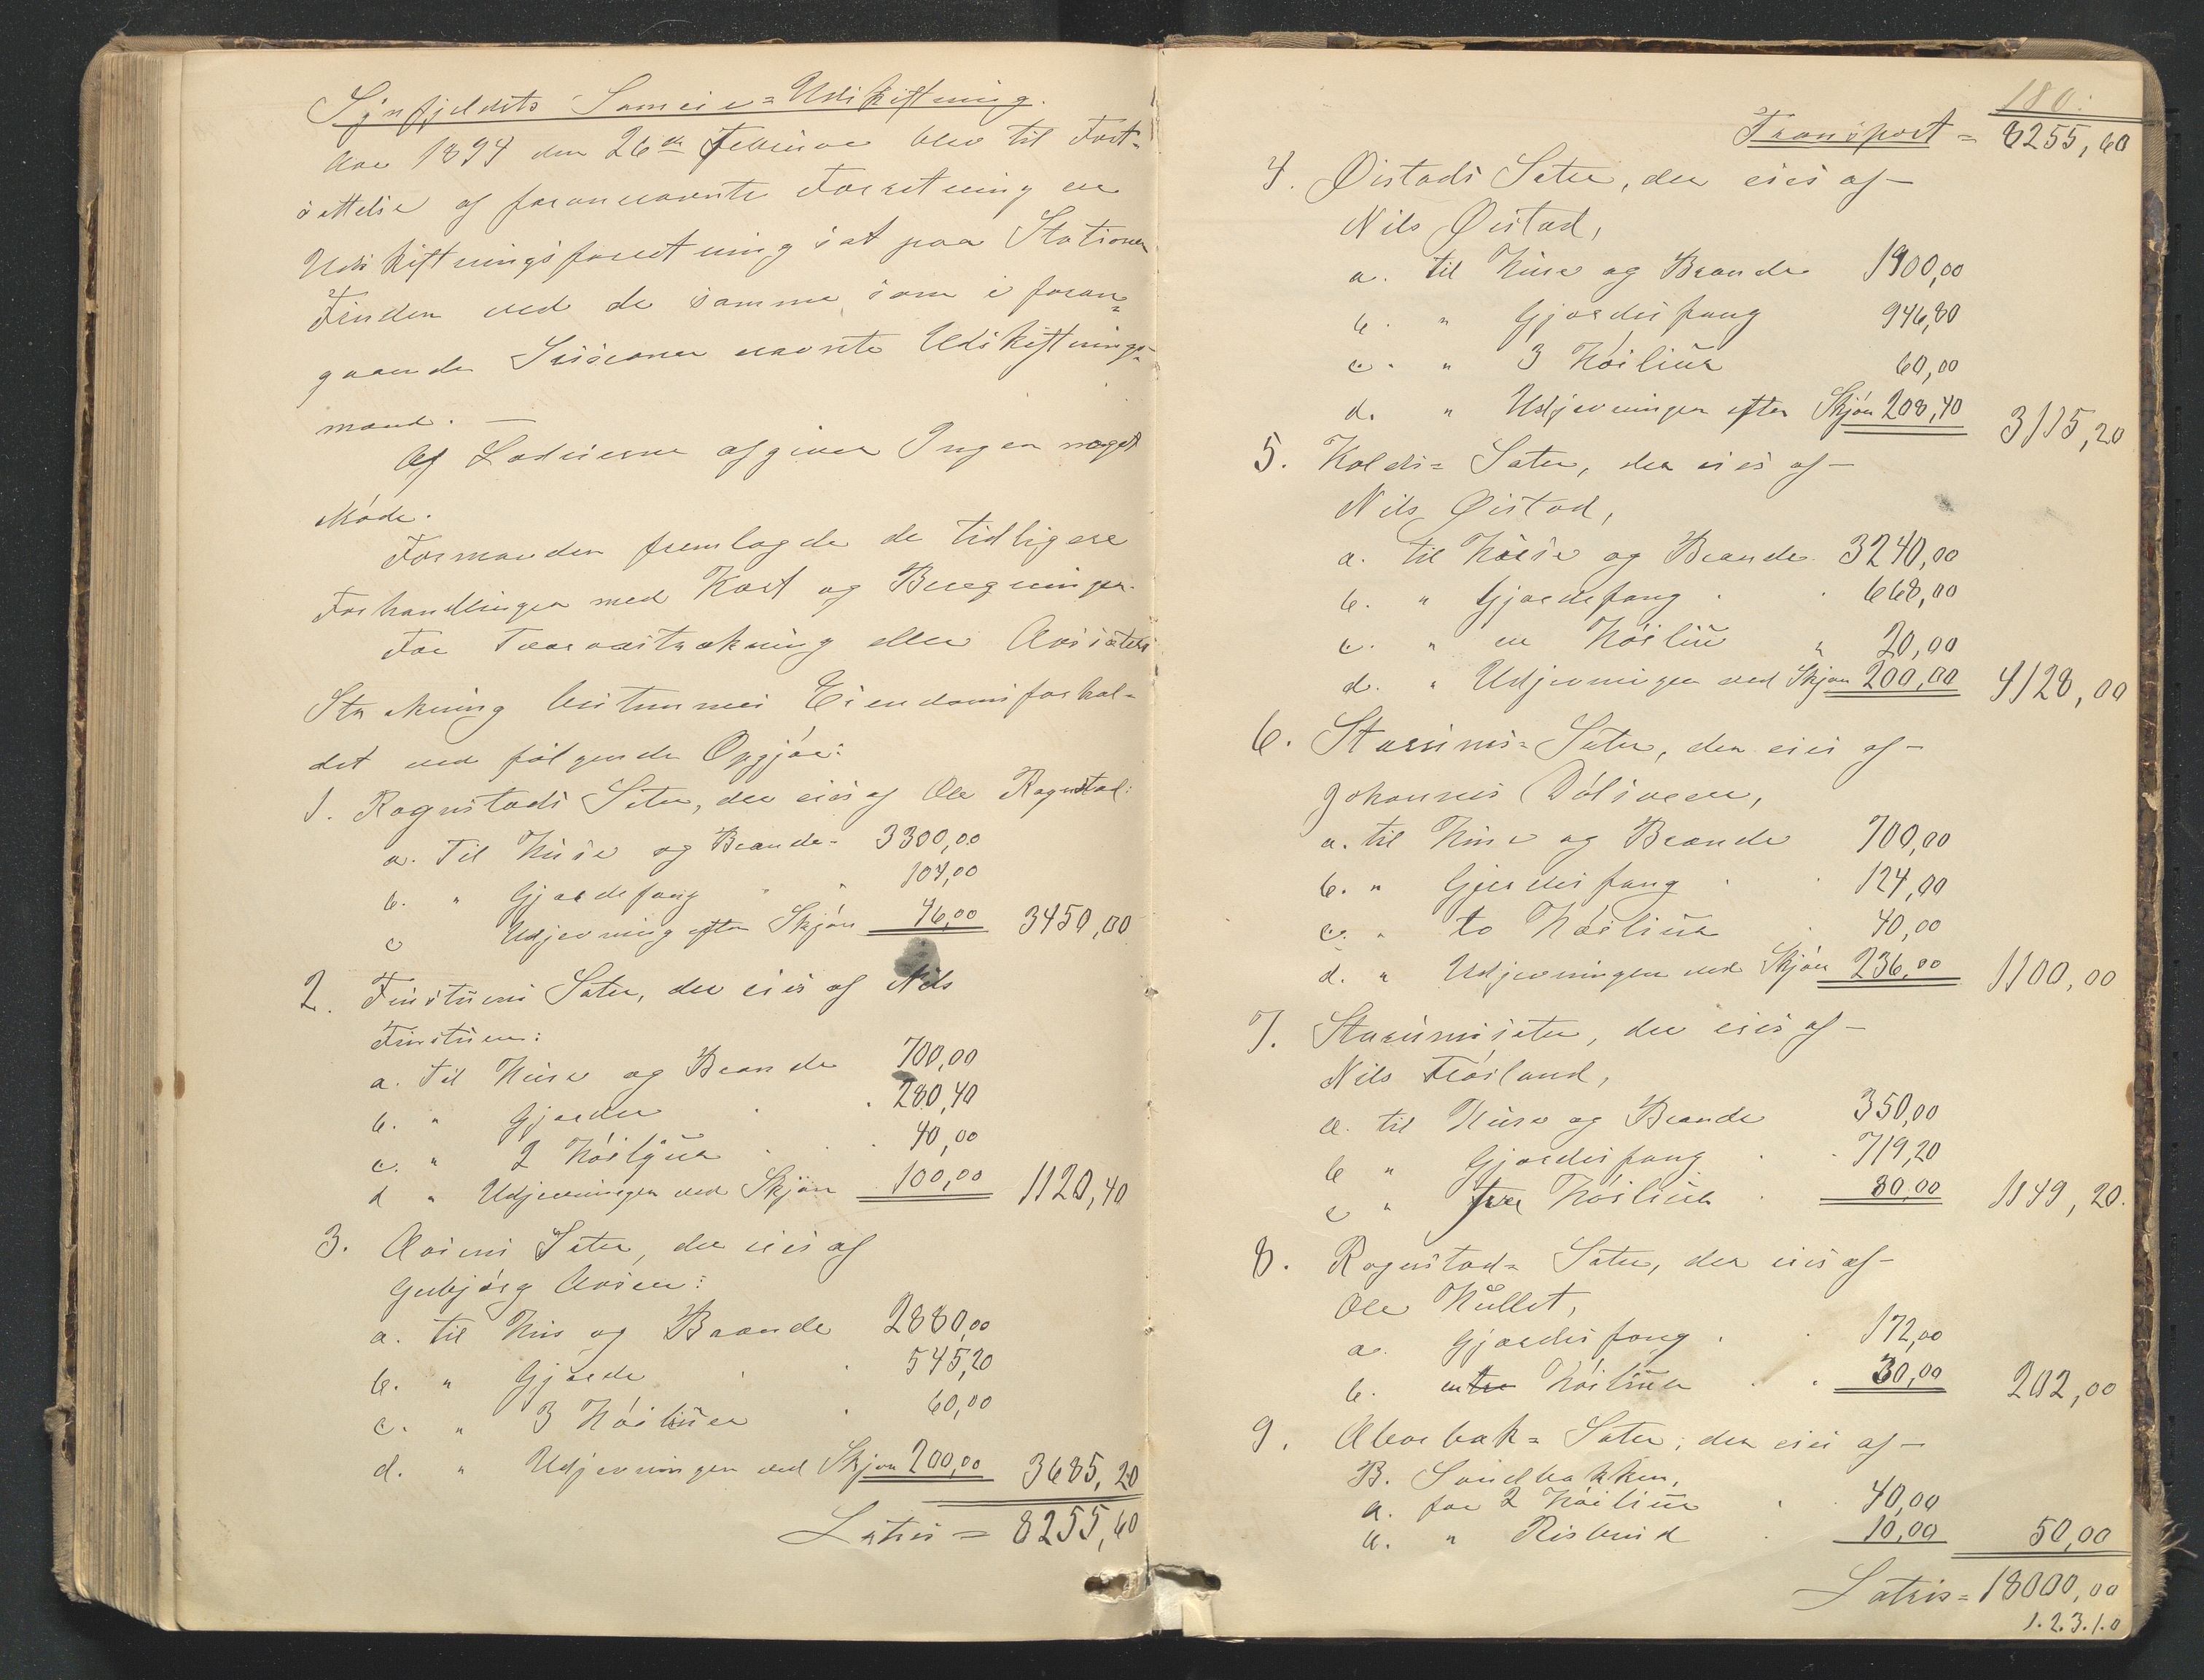 Synfjeldets Sameie=Udskiftning.
Aar 1894 den 26de Februar blev til Fort=
sættelse af forannævnte Forretning en
Udskiftningsforretning sat paa Stationen
Finden ved de samme, som i foran=
gaaende Sessioner nævnte Udskiftnings=
mænd. —
Af Lodeierne afgiver Ingen noget
Møde.
Formanden fremlagde de tidligere
Forhandlinger med Kart og Beregninger.
For
Strækning bestemmes Eiendomsforhol=
det ved følgende Opgjør:
1. Rognstads Sæter, der eies af Ole Rognstad:
a. Til Huse og Brænde 3300,00
b. " Gjærdefang " " 104,00
c Udjevning efter Skjøn 46,00 3450,00
2. Finstuens Sæter, der eies af Nils
Finstuen:
a. Til Huse og Brænde 700,00
b. " Gjærder . . 280,40
c. " 2 Høiljuer . . 40,00
d " Udjevningen ved Skjøn 100,00 1120,40
3. Aasens Sæter, der eies af
Gubjørg Aasen:
a. til Hus og Brænde 2880,00
b. " Gjærde . . 545,20
c. " 3 Høiliuer . 60,00
d. " Udjevningen ved Skjøn 200,00 3685,20
Latus = 8255,60
180.
Transport = 8255,60
4. Øistads Sæter, der eies af —
Nils Øistad,
a. til Huse og Brænde 1900,00
b. " Gjærdesfang 946,80
c. " 3 Høiliuer 60,00
d. " Udjevningen efter Skjøn 208,40 3115,20
5. Kolds= Sæter, der eies af —
Nils Øistad,
a. til Huse og Brænde 3240,00
b. " Gjærdefang . . 668,00
c. " en Høiliu " 20,00
d. " Udjevningen ved Skjøn 200,00 4128,00
6. Sæter, der eies af —
Johannes
a. til Huse og Brænde 700,00
b. " Gjærdesfang . . 124,00
c. " to Høiliuer . 40,00
d. " Udjevningen ved Skjøn 236,00 1100,00
7. der eies af —
Nils Frøisland,
a. til Huse og Brænde 350,00
b " Gjærdesfang . . 719,20
c " Høiliuer . 80,00 1149,20.
8. Rognstad= Sæter, der eies af —
Ole Hullet,
a. Gjærdesfang . . 172,00
b. Høiliuer . . 30,00 202,00
9. Sæter, der eies af —
B. Sandbakken,
a. for 2 Høiliuer . . 40,00
b. " Risbund . 10,00 50,00
Latus = 18000,00
1.2.3.1.0